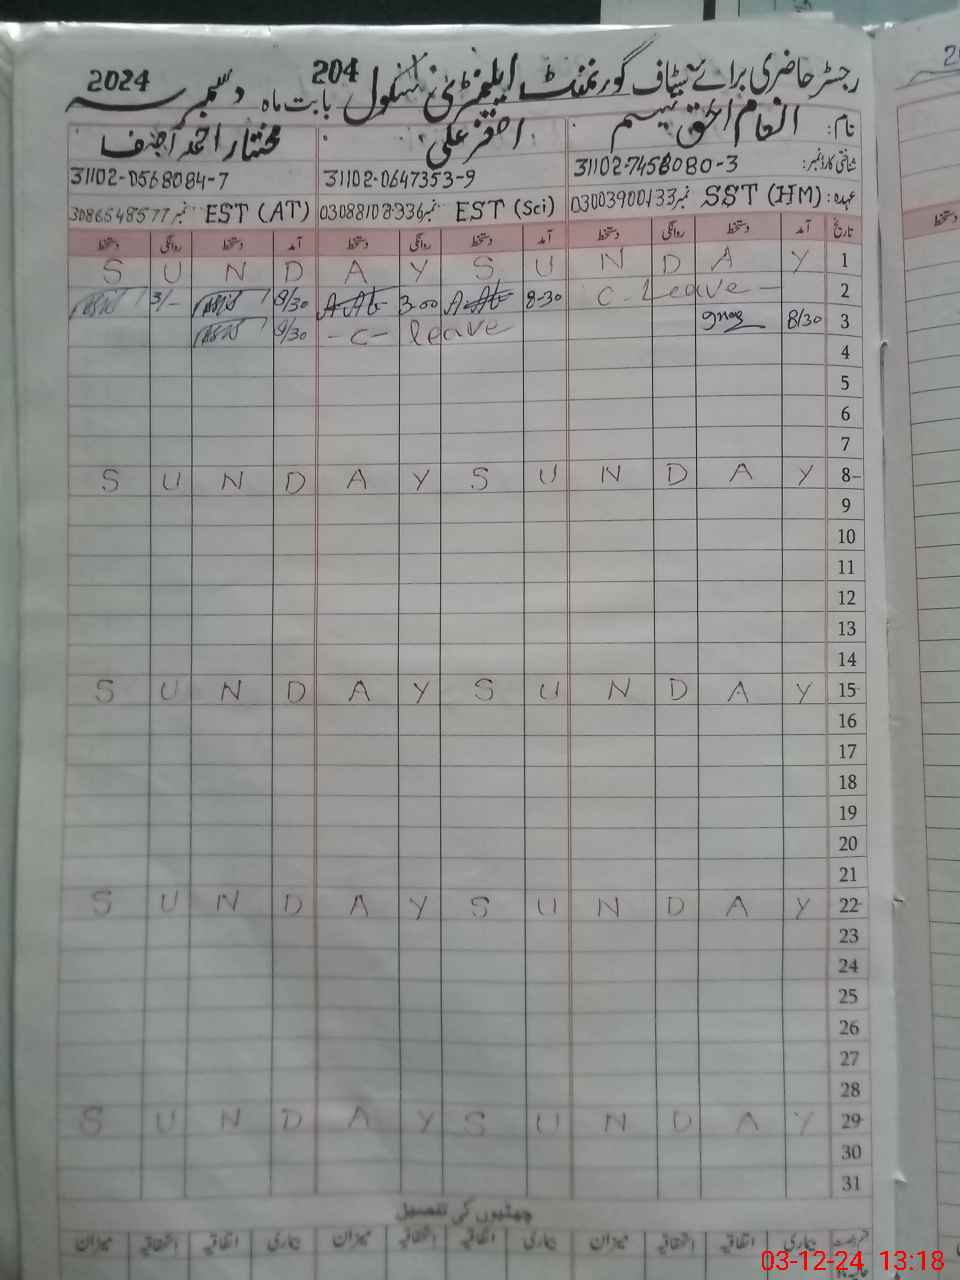 رجسٹر حاضری برائے سٹاف گورنمنٹ ایلیمنٹری سکول 204 بابت ماہ دسمبر 2024
نام: انعام الحق اصغر علی مختار احمد
شناختی کارڈ نمبر: 31102-7456080-3 31102-0647353-9 31102-0568084-7
عہدہ: SST (HM) نمبر 03003900133 EST (Sci) نمبر 03088108936 EST (AT) نمبر 3086548577
تاریخ آمد دستخط روانگی دستخط آمد دستخط روانگی دستخط آمد دستخط روانگی دستخط
1 S U N D A Y S U N D A Y
2 C. Leave - 8-30 3.00 9/30 3/-
3 8/30 - C - leave 9/30
4
5
6
7
8 S U N D A Y S U N D A Y
9
10
11
12
13
14
15 S U N D A Y S U N D A Y
16
17
18
19
20
21
22 S U N D A Y S U N D A Y
23
24
25
26
27
28
29 S U N D A Y S U N D A Y
30
31
چھٹیوں کی تفصیل
بیماری اتفاقیہ میزان بیماری اتفاقیہ میزان بیماری اتفاقیہ میزان
03-12-24 13:18